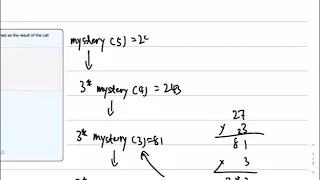 ned as the result of the call
mystery (5) = 24
3* mystery (4) = 243
3* mystery (3) = 81
27
x 33
81
x 3
243